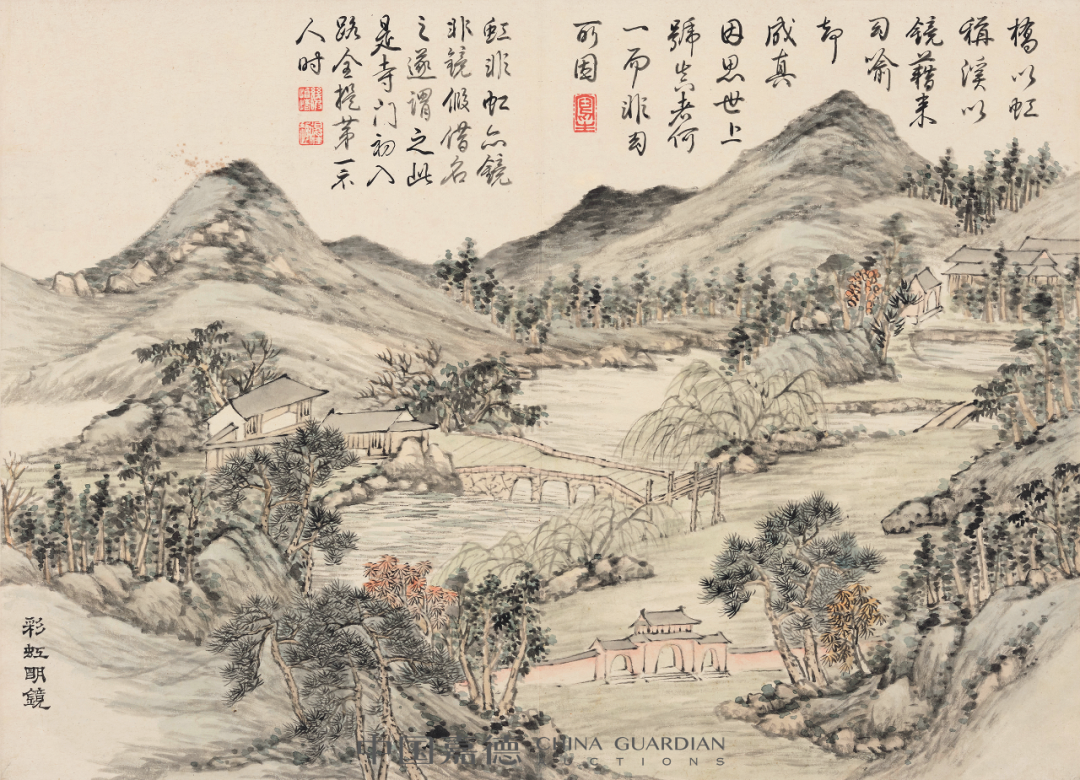 橋以虹
稱溪以
鏡藉来
司喻
却
成真
因思世上
號者何
一而非司
所因
虹非虹亦鏡
非鏡假借名
之遂謂之此
是寺門初入
路全提第一示
人时
彩虹明鏡
中国嘉德 CHINA GUARDIAN
AUCTIONS